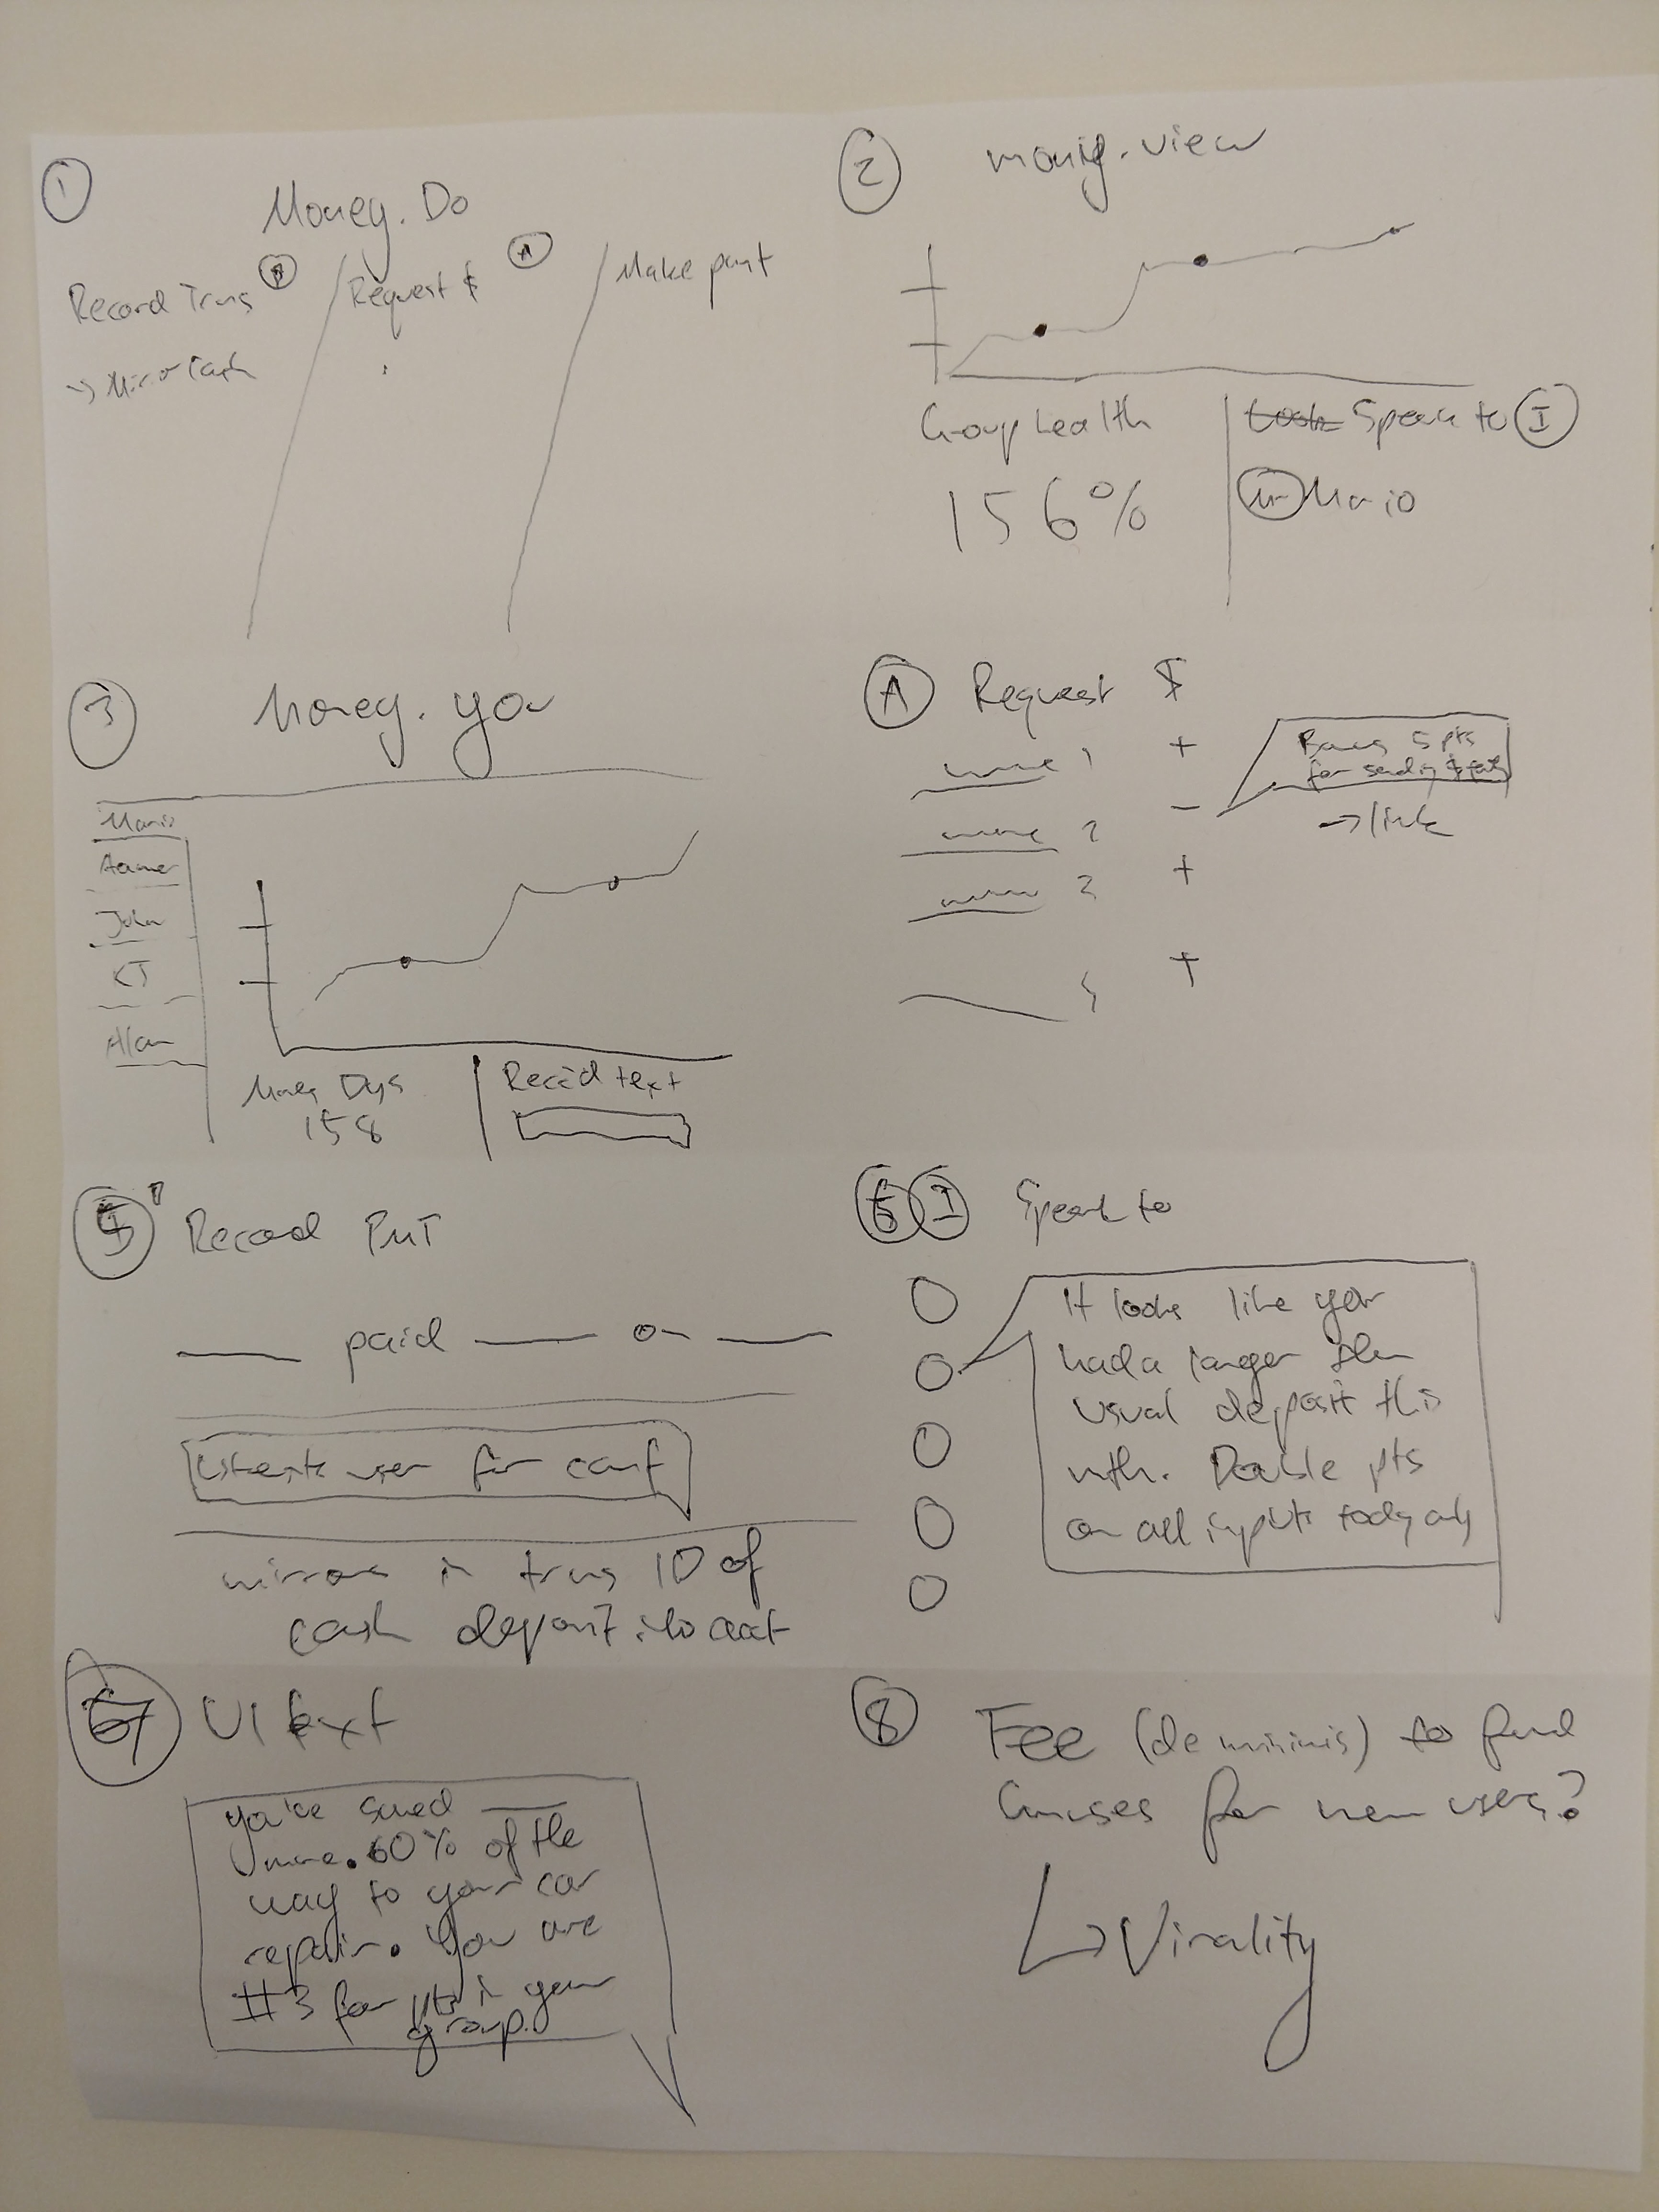 1
Money. Do
Record Trns
Request $
A
Make pmt
→
2
money. view
Group health
156%
Speak to I
Mario
3
Money. you
Mario
Aamer
John
KJ
Alan
Money Dys
158
Record text
A Request $
name 1 +
name 2 -
name 3 +
+
Bonus 5 pts
for sending
→ link
5 Record PMT
paid on
user for conf
mirrors in trns ID of
cash deposit into acct
6 I Speak to
It looks like you
had a larger then
usual deposit this
mth. Double pts
on all inputs today only
7 UI text
you've saved
more. 60% of the
way to your car
repair. You are
#3 for pts in your
group.
8 Fee (de minimis) to fund
for new users?
↳ Virality